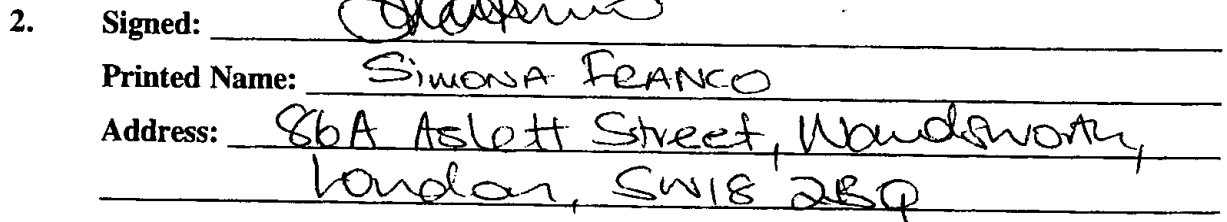 2. Signed:
Printed Name: SIMONA FRANCO
Address: 86A Aslett Street, Wandsworth,
London, SW18 2BQ